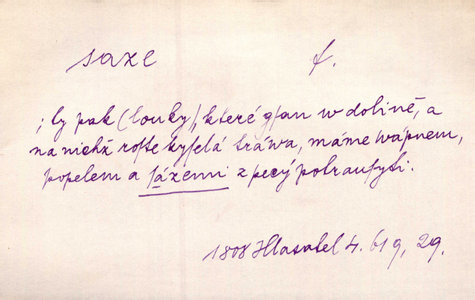 saze f.
; ty pak (louky), které gsau w dolině, a
na nichž roste kyselá tráwa, máme wápnem,
popelem a sázemi z pecý potrausyti.
1808 Hlasatel 4. 619, 29.